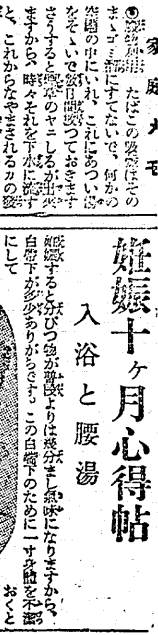 家庭メモ
たばこの吸殻はその
まゝゴミ箱にすてないで、何かの
空罐の中にいれ、これにあつい湯
をそゝいで数日間放つておきます
さうすると煙草のヤニしるが出来
ますから、時々それを下水に流す
と、これからなやまされるカの発
妊娠十ヶ月心得帖
入浴と腰湯
妊娠すると分びつ物が普段よりは幾分まし気味になりますから、
白帯下が多少ありがちです。この白帯下のために一寸身体を不潔
にして
おくと